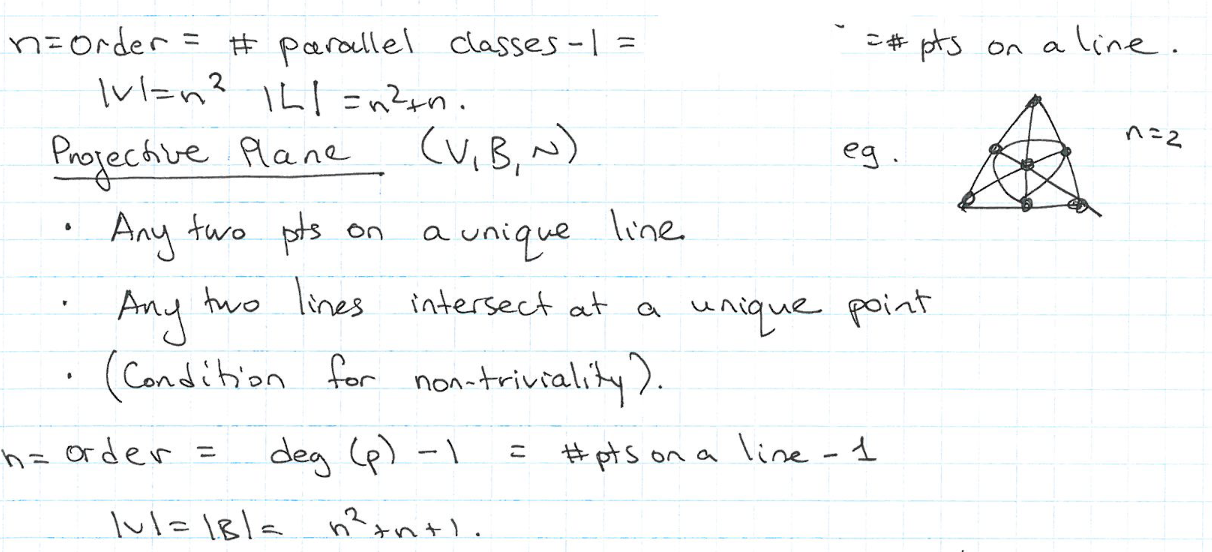 n=order = # parallel classes-1 = =# pts on a line.
|V|=n² |L| =n²+n.
Projective Plane (V,B,N)
eg. n=2
· Any two pts on a unique line.
· Any two lines intersect at a unique point
· (Condition for non-triviality).
n= order = deg (p) -1 = #pts on a line - 1
|V|=|B|= n²+n+1.